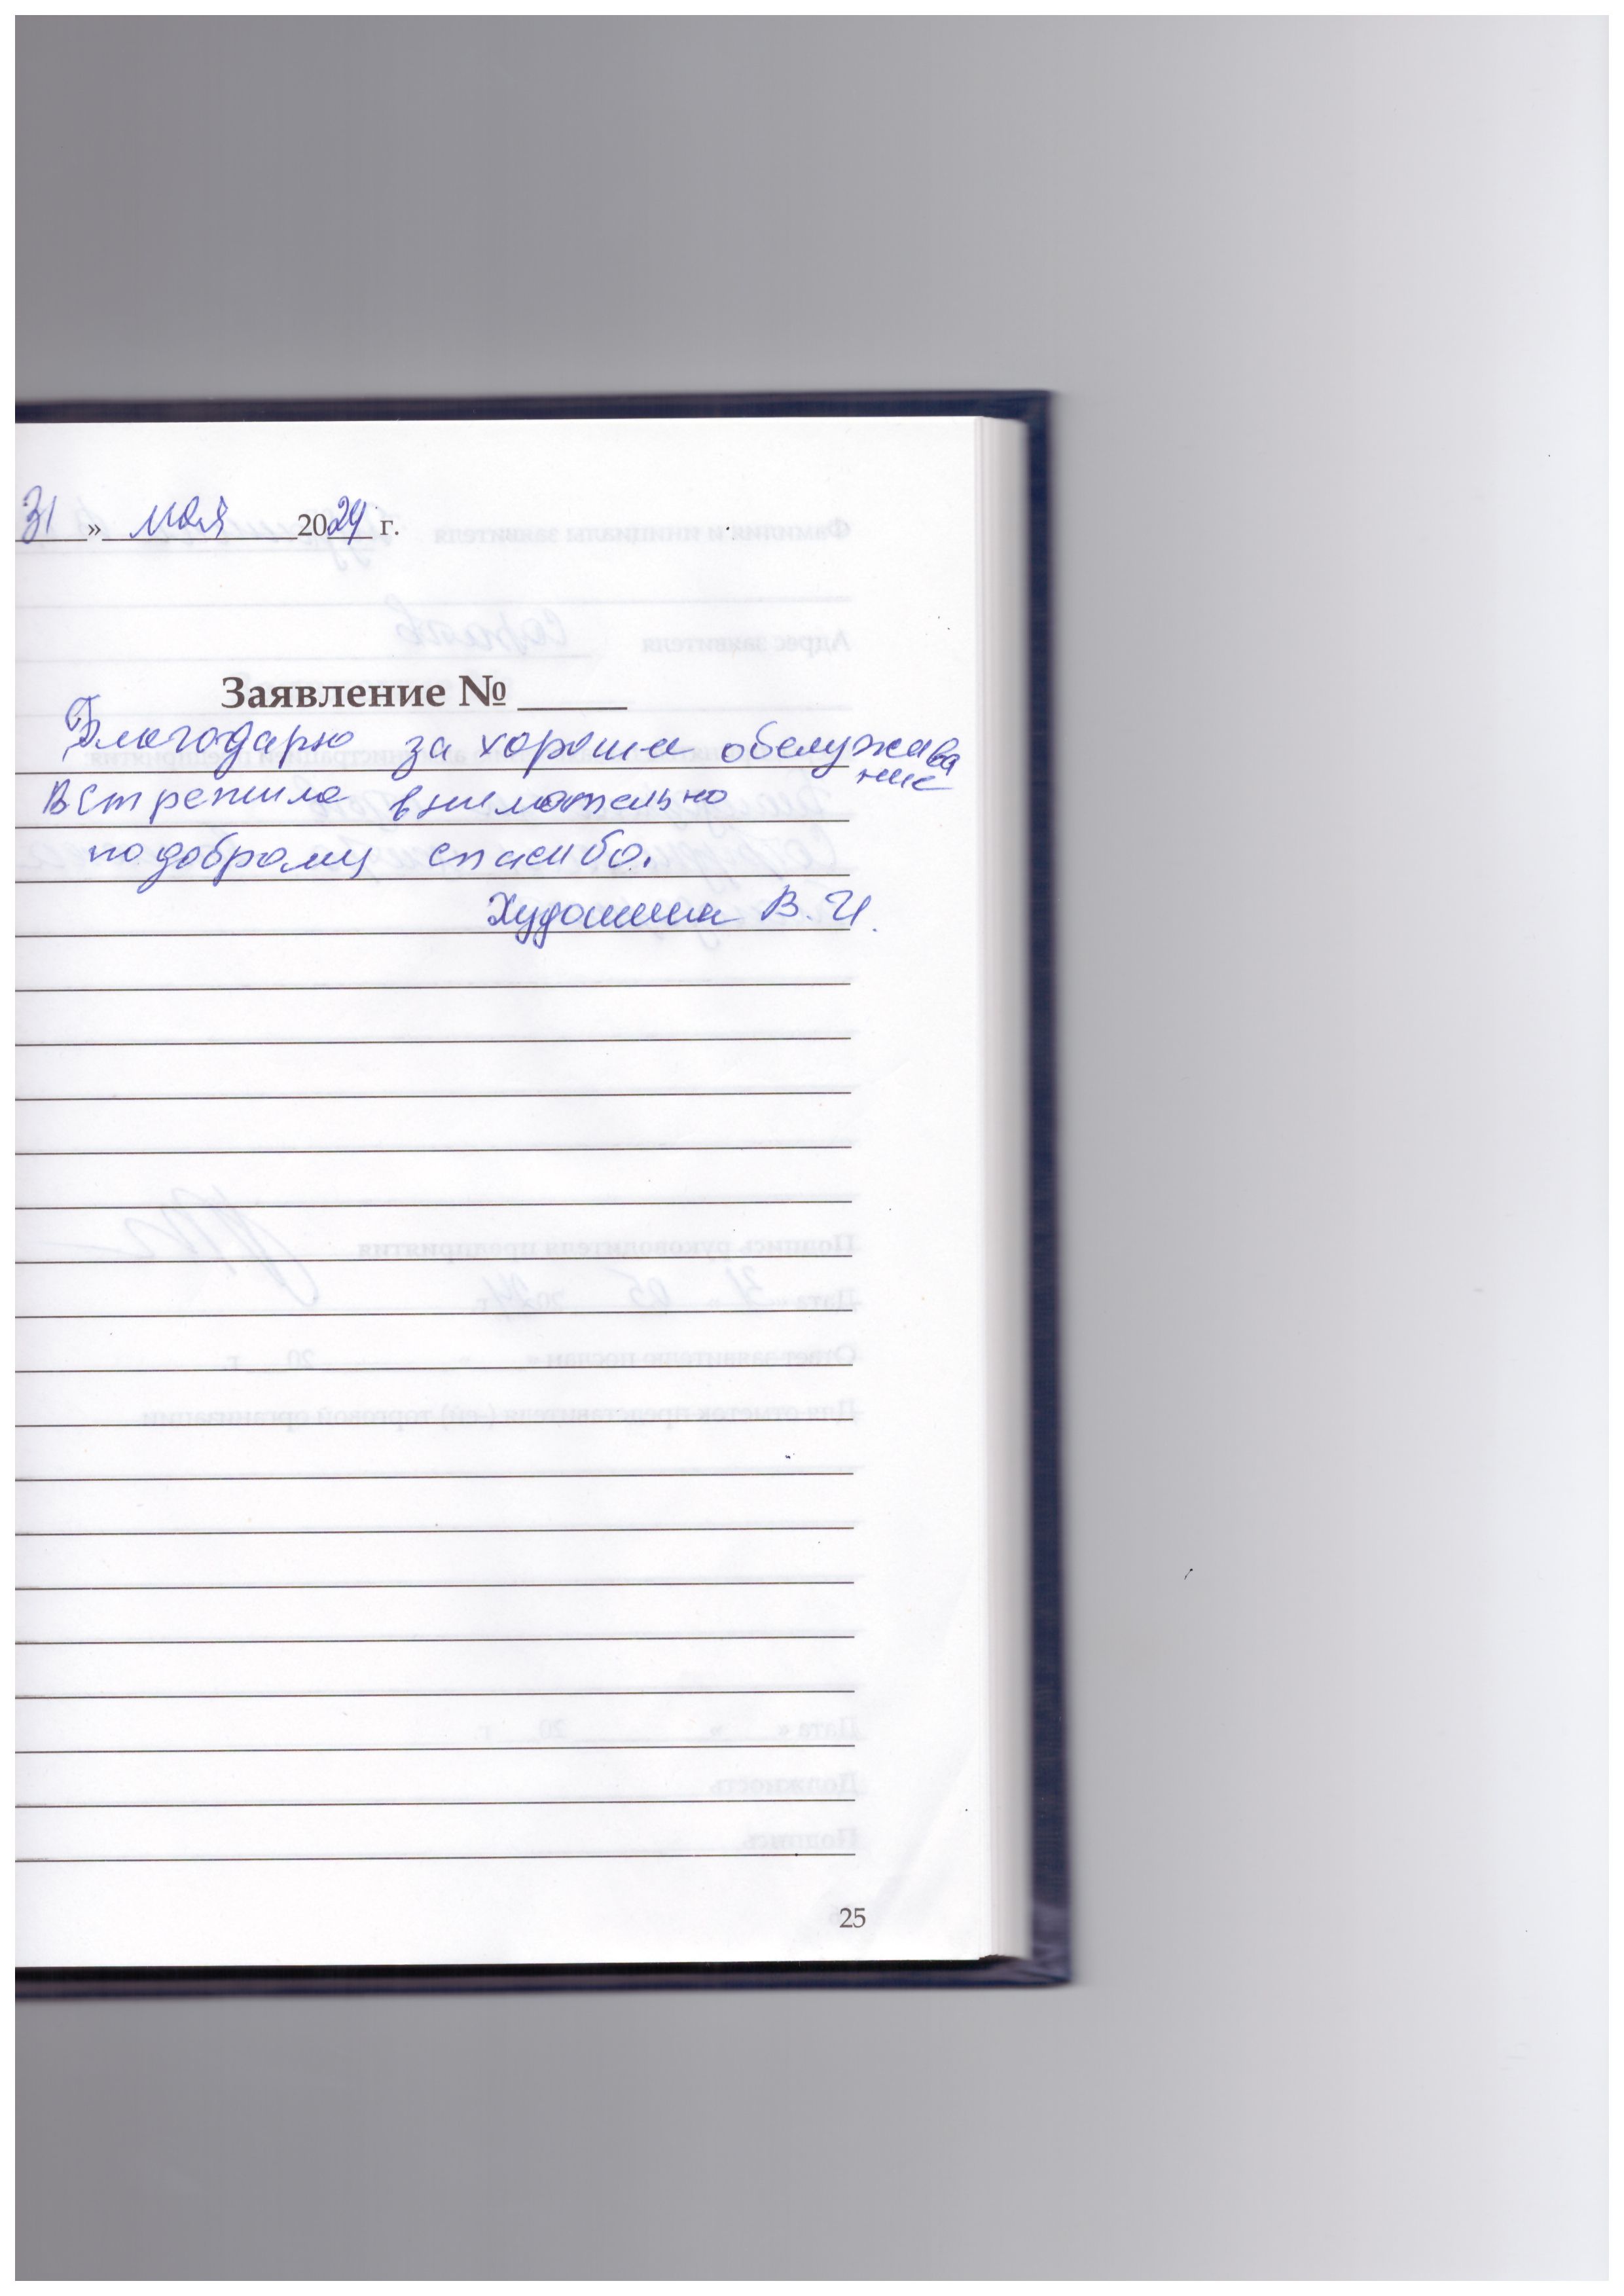 31 » мая 2024 г.
Заявление № ____
Благодарю за хороше обслужива
ние
Встретила внимательно
по доброму спасибо.
В. И.
25